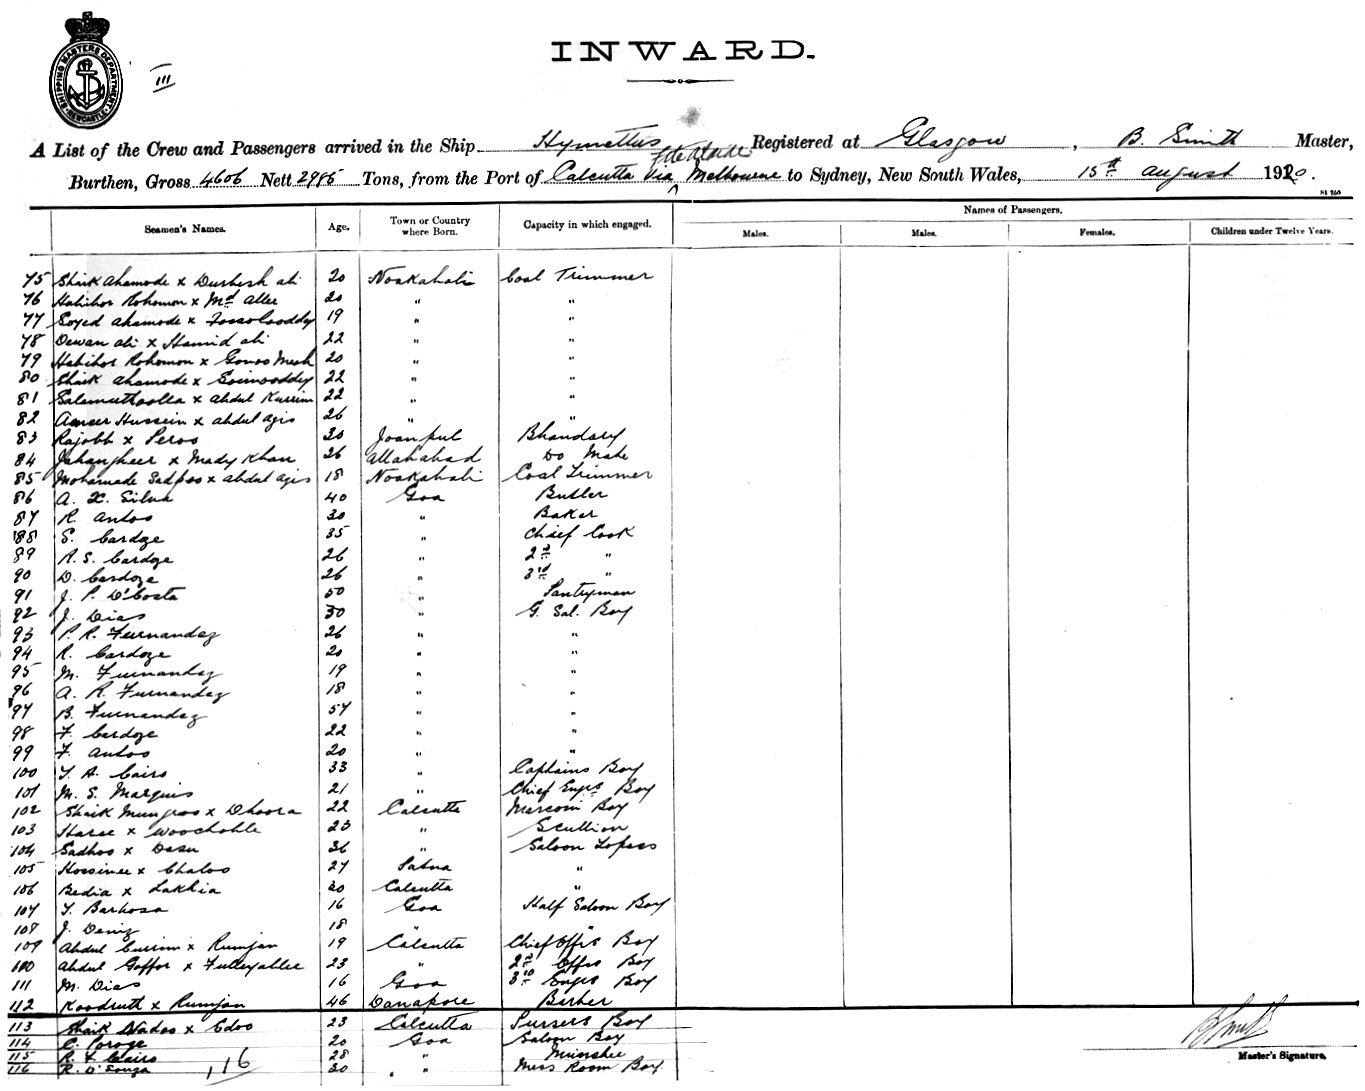 SHIPPING MASTERS DEPARTMENT
NEWCASTLE
III
INWARD.
A List of the Crew and Passengers arrived in the Ship Hymettus Registered at Glasgow , B. Smith Master,
Burthen, Gross 4606 Nett 2985 Tons, from the Port of Calcutta via Adelaide Melbourne to Sydney, New South Wales, 15th August 1920.
Seamen's Names. Age. Town or Country where Born. Capacity in which engaged. Names of Passengers.
Males. Males. Females. Children under Twelve Years.
75 Shaik Ahamode x Durbesh Ali 20 Noakahali Coal Trimmer
76 Habibor Rohomon x Md Allee 20 " "
77 Soyed Ahamode x 19 " "
78 Dewan Ali x Hamid Ali 22 " "
79 Habibor Rohomon x 20 " "
80 Shaik Ahamode x 22 " "
81 Salamuthoolla x Abdul Karrim 22 " "
82 Ameer Hussein x Abdul Agis 26 " "
83 Rajobb x Peroo 30 Joanpul Bhandary
84 Jahangheer x Mady Khan 26 Allahabad Do Mate
85 Mohamade x Abdul Agis 18 Noakahali Coal Trimmer
86 A. X. Silva 40 Goa Butler
87 R. Antos 30 " Baker
88 S. Cardoze 35 " Chief Cook
89 R. S. Cardoze 26 " 2nd "
90 D. Cardoze 26 " 3rd "
91 J. P. D'Costa 50 " Pantryman
92 J. Dias 30 " G. Sal. Boy
93 P. R. Furnandez 26 " "
94 R. Cardoze 20 " "
95 M. Furnandez 19 " "
96 A. R. Furnandez 18 " "
97 B. Furnandez 57 " "
98 F. Cardoze 22 " "
99 F. Antos 20 " "
100 A. Cairo 33 " Captains Boy
101 M. S. Marquis 21 " Chief Engrs Boy
102 Shaik Mungroo x Dhoora 22 Calcutta Marconi Boy
103 Haree x Woochohle 23 " Scullion
104 Sadhoo x Dasu 36 " Saloon Topass
105 Hossinee x Chaloo 27 Patna "
106 Bedia x Lakhia 30 Calcutta "
107 Barbosa 16 Goa Half Saloon Boy
108 J. Deniz 18 " "
109 Abdul Currim x Rumjan 19 Calcutta Chief Offrs Boy
100 Abdul Goffor x 23 " 2nd Offrs Boy
111 M. Dias 16 Goa 3rd Engrs Boy
112 Koodruth x Rumjan 46 Danapore Barber
113 Shaik x Edoo 23 Calcutta Pursers Boy
114 C. Poroze 20 Goa Saloon Boy
115 R. Cairo 28 " Munshee
116 R. D'Souza 116 30 " Mess Room Boy
B Smith
Master's Signature.